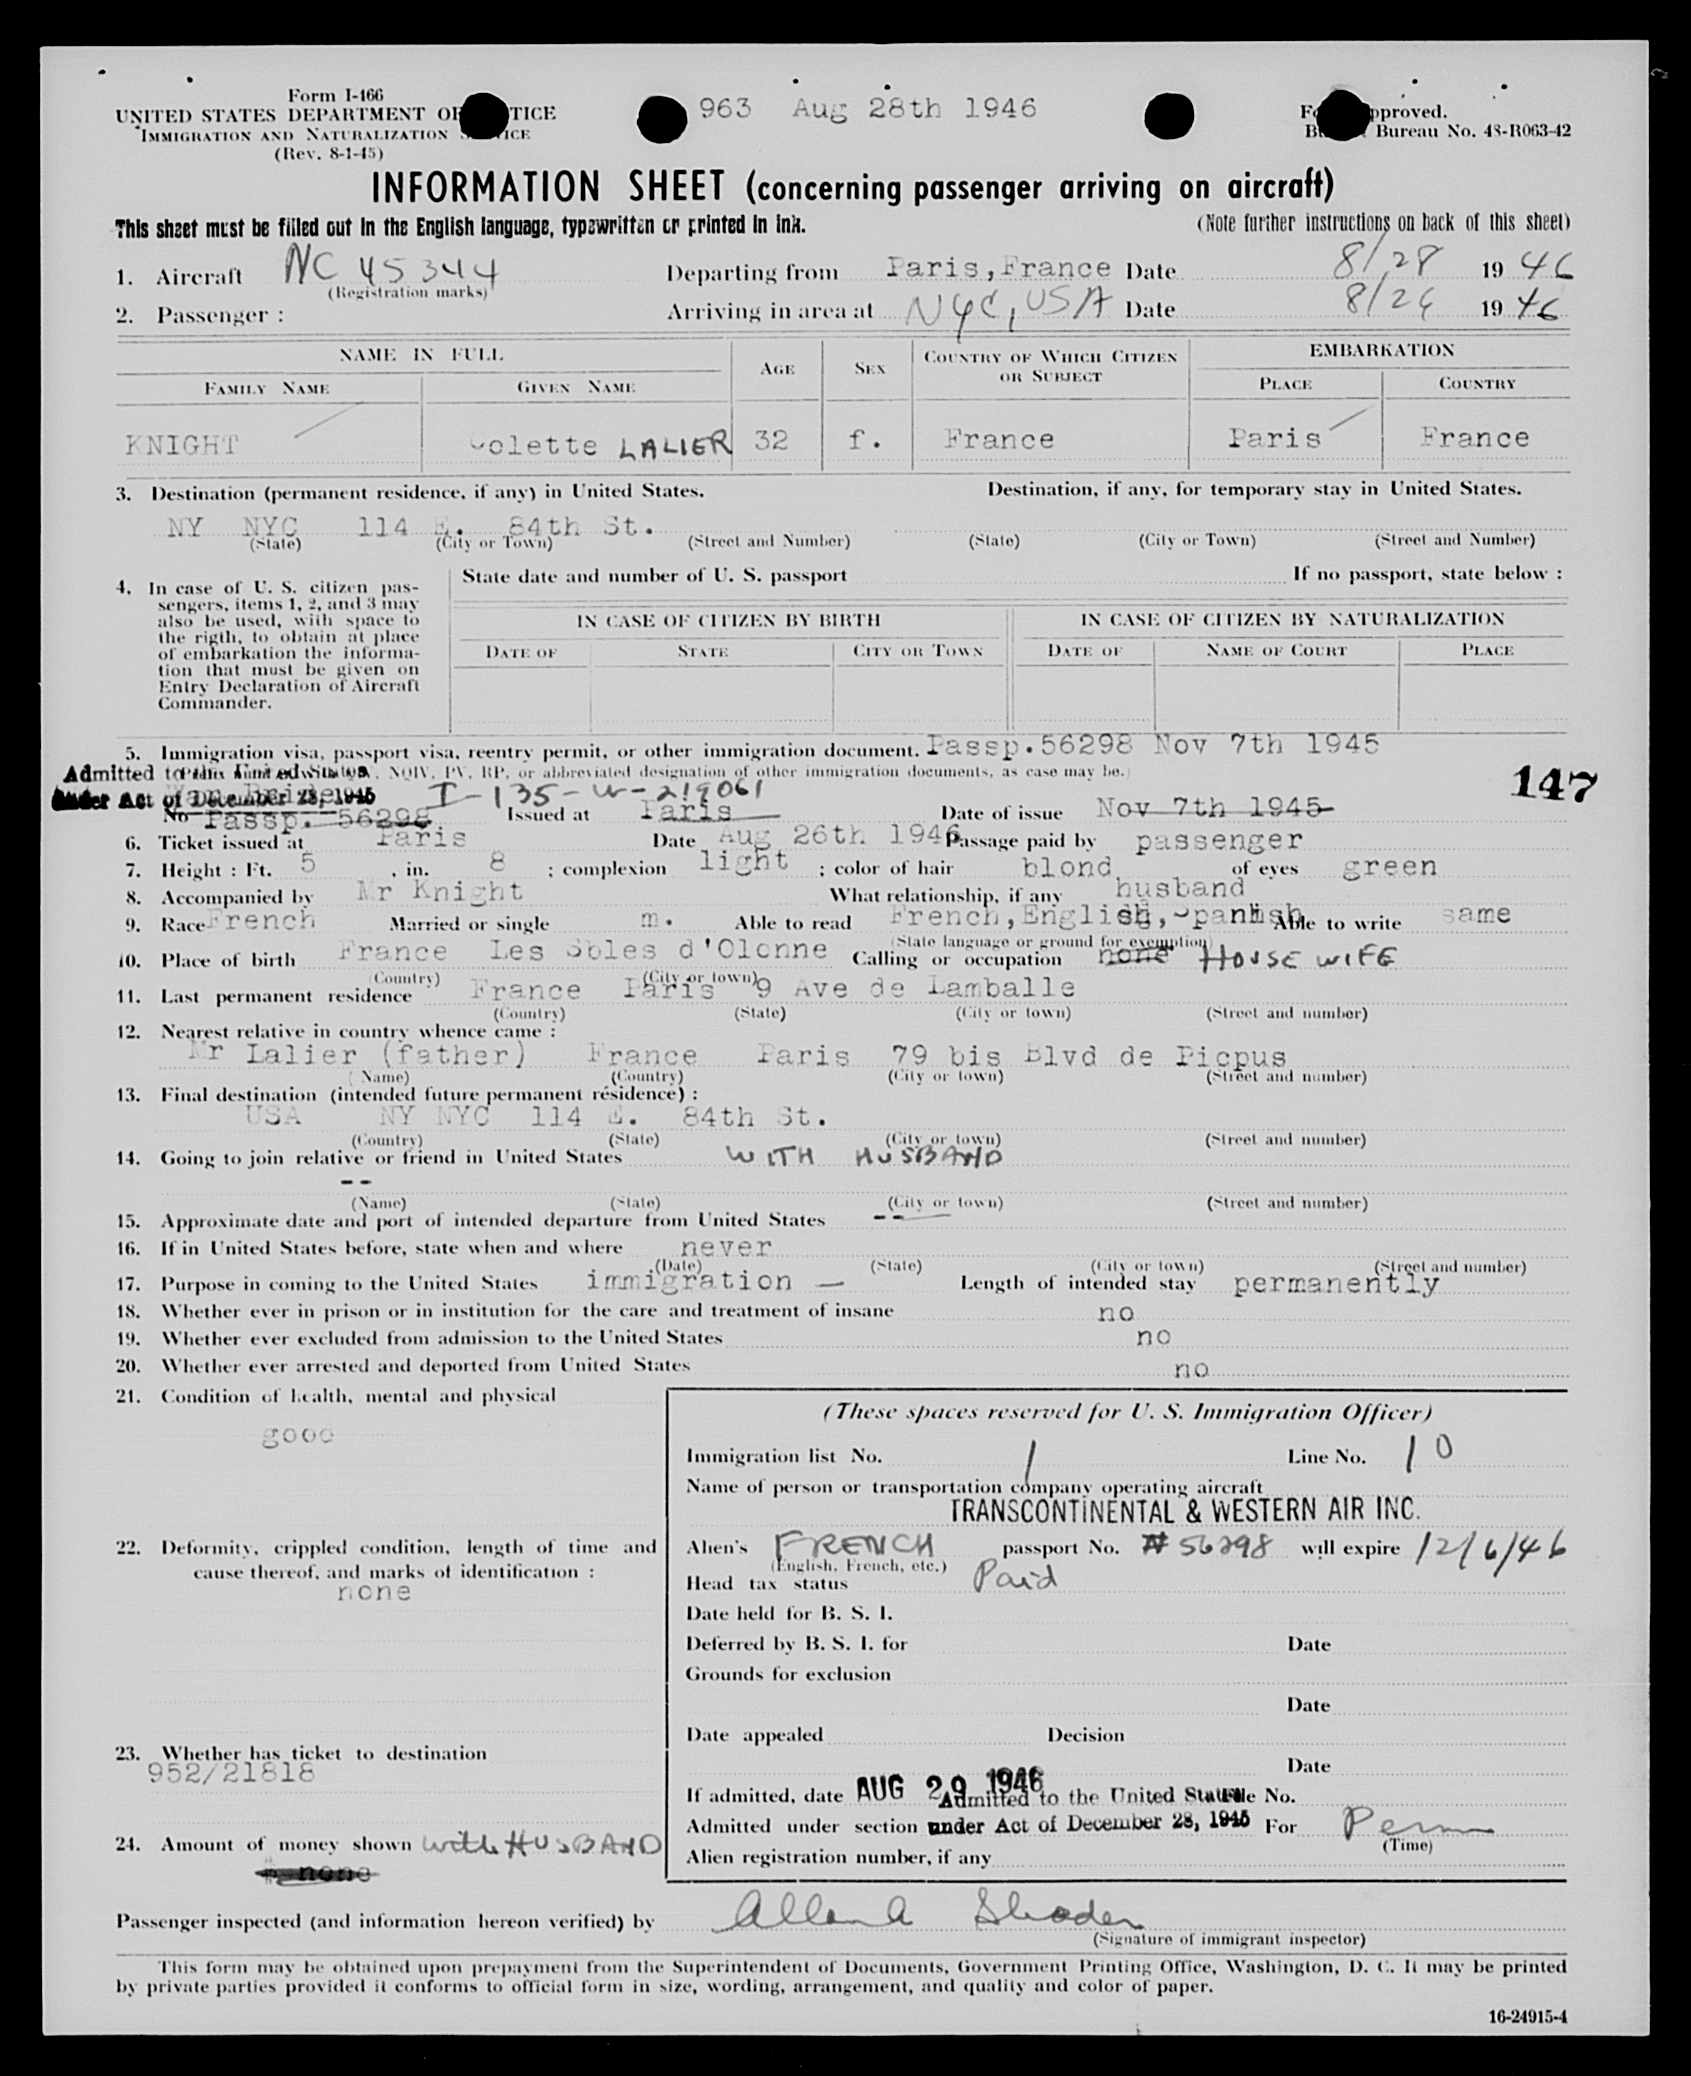 Form I-466
UNITED STATES DEPARTMENT OF JUSTICE
IMMIGRATION AND NATURALIZATION SERVICE
(Rev. 8-1-45)
963 Aug 28th 1946
Form approved.
Bureau No. 43-R063-42
INFORMATION SHEET (concerning passenger arriving on aircraft)
This sheet must be filled out in the English language, typewritten or printed in ink.
(Note further instructions on back of this sheet)
1. Aircraft NC 45344 Departing from Paris, France Date 8/28 1946
(Registration marks)
2. Passenger : Arriving in area at NYC, USA Date 8/29 1946
NAME IN FULL AGE SEX COUNTRY OF WHICH CITIZEN OR SUBJECT EMBARKATION
FAMILY NAME GIVEN NAME PLACE COUNTRY
KNIGHT Colette LALIER 32 f. France Paris France
3. Destination (permanent residence, if any) in United States. Destination, if any, for temporary stay in United States.
NY NYC 114 E. 84th St.
(State) (City or Town) (Street and Number) (State) (City or Town) (Street and Number)
4. In case of U. S. citizen pas-
sengers, items 1, 2, and 3 may
also be used, with space to
the rigth, to obtain at place
of embarkation the informa-
tion that must be given on
Entry Declaration of Aircraft
Commander.
State date and number of U. S. passport If no passport, state below :
IN CASE OF CITIZEN BY BIRTH IN CASE OF CITIZEN BY NATURALIZATION
DATE OF STATE CITY OR TOWN DATE OF NAME OF COURT PLACE
5. Immigration visa, passport visa, reentry permit, or other immigration document. Passp. 56298 Nov 7th 1945
NQIV, PV, RP, or abbreviated designation of other immigration documents, as case may be.)
Admitted to the United States
Under Act of December 28, 1945
War Bride I-135-W-219061
147
No Passp. 56298 Issued at Paris Date of issue Nov 7th 1945
6. Ticket issued at Paris Date Aug 26th 1946 Passage paid by passenger
7. Height : Ft. 5 , in. 8 ; complexion light ; color of hair blond of eyes green
8. Accompanied by Mr Knight What relationship, if any husband
9. Race French Married or single m. Able to read French, English, Spanish Able to write same
(State language or ground for exemption)
10. Place of birth France Les Sbles d'Olonne Calling or occupation none HOUSE WIFE
(Country) (City or town)
11. Last permanent residence France Paris 9 Ave de Lamballe
(Country) (State) (City or town) (Street and number)
12. Nearest relative in country whence came :
Mr Lalier (father) France Paris 79 bis Blvd de Picpus
(Name) (Country) (City or town) (Street and number)
13. Final destination (intended future permanent résidence) :
USA NY NYC 114 E. 84th St.
(Country) (State) (City or town) (Street and number)
14. Going to join relative or friend in United States WITH HUSBAND
--
(Name) (State) (City or town) (Street and number)
15. Approximate date and port of intended departure from United States --
16. If in United States before, state when and where never
(Date) (State) (City or town) (Street and number)
17. Purpose in coming to the United States immigration — Length of intended stay permanently
18. Whether ever in prison or in institution for the care and treatment of insane no
19. Whether ever excluded from admission to the United States no
20. Whether ever arrested and deported from United States no
21. Condition of health, mental and physical
good
22. Deformity, crippled condition, length of time and
cause thereof, and marks of identification :
none
23. Whether has ticket to destination
952/21818
24. Amount of money shown with HUSBAND
none
(These spaces reserved for U. S. Immigration Officer)
Immigration list No. 1 Line No. 10
Name of person or transportation company operating aircraft
TRANSCONTINENTAL & WESTERN AIR INC.
Alien's FRENCH passport No. # 56298 will expire 12/6/46
(English, French, etc.)
Head tax status Paid
Date held for B. S. I.
Deferred by B. S. I. for Date
Grounds for exclusion
Date
Date appealed Decision
Date
If admitted, date AUG 29 1946 Admitted to the United States No.
Admitted under section under Act of December 28, 1945 For Perm
(Time)
Alien registration number, if any
Passenger inspected (and information hereon verified) by Allan A Shoden
(Signature of immigrant inspector)
This form may be obtained upon prepayment from the Superintendent of Documents, Government Printing Office, Washington, D. C. It may be printed
by private parties provided it conforms to official form in size, wording, arrangement, and quality and color of paper.
16-24915-4